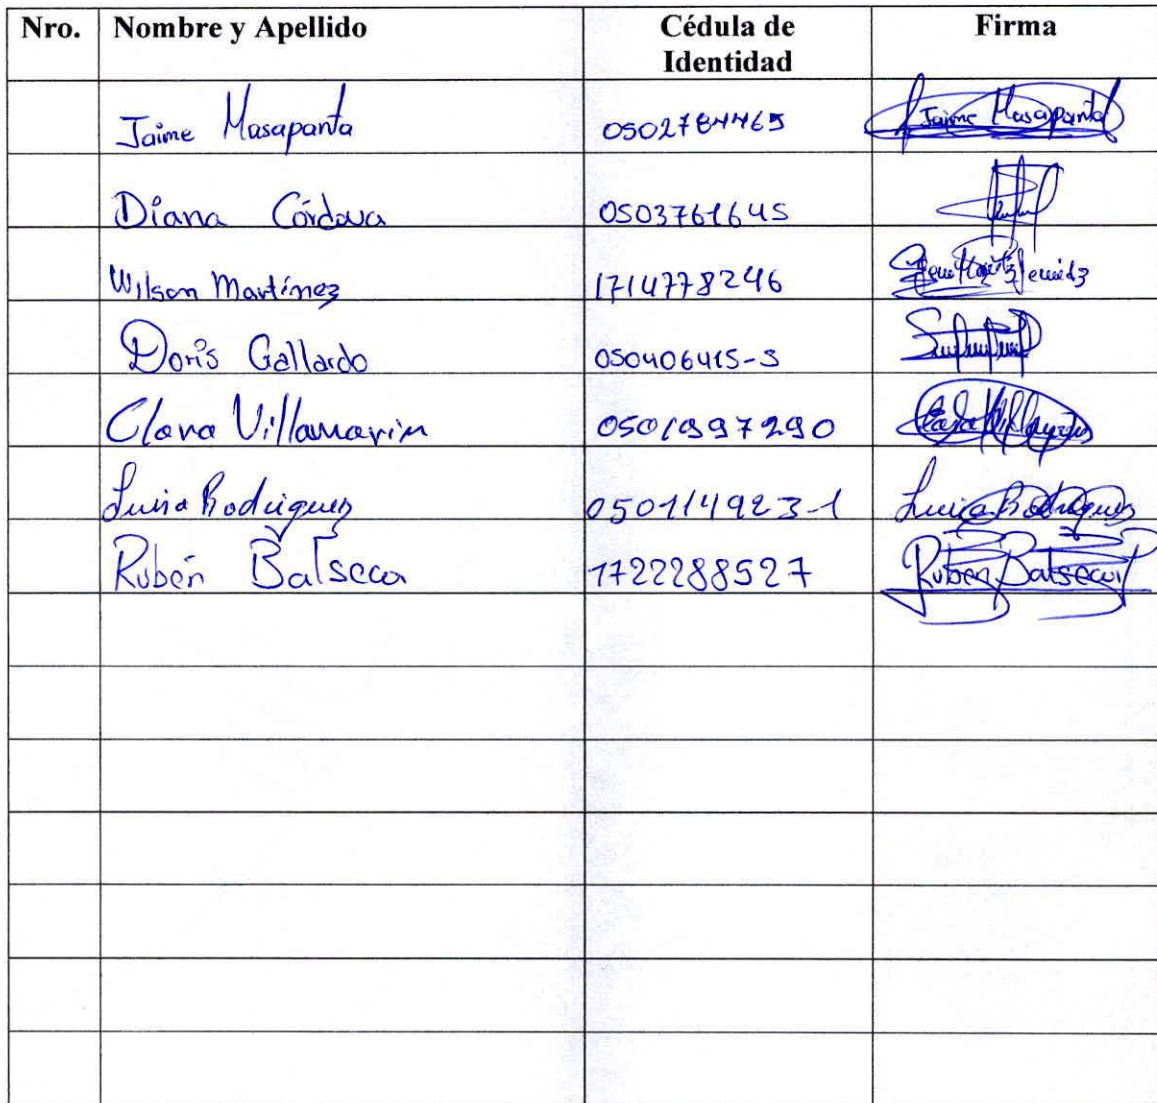 Nro. Nombre y Apellido Cédula de Identidad Firma
Jaime Masapanta 0502784465 Jaime Masapanta
Diana Córdova 0503761645
Wilson Martínez 1714778246
Doris Gallardo 050406415-5
Clara Villamarin 0501997290 Clara Villamarin
Luisa Rodriguez 050114923-1 Luisa Rodriguez
Rubén Balseca 1722288527 Rubén Balseca